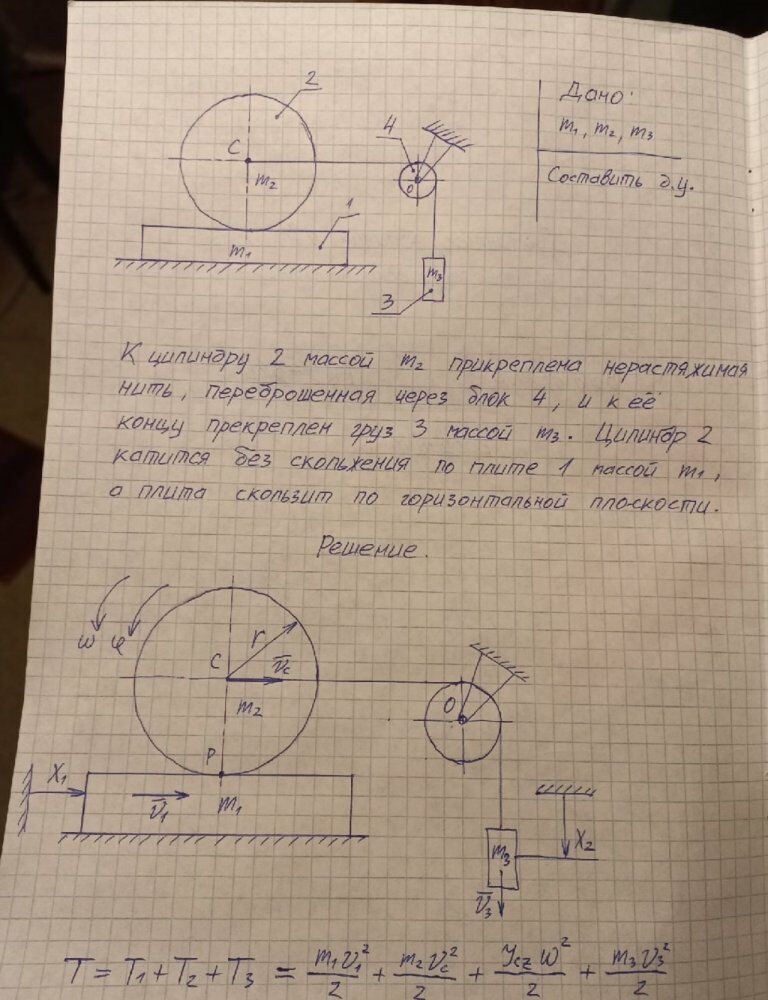 2
4
C
O
m₂
1
m₁
m₃
3
Дано:
m₁, m₂, m₃
Составить д.у.
К цилиндру 2 массой m₂ прикреплена нерастяжимая
нить, переброшенная через блок 4, и к её
концу прекреплен груз 3 массой m₃. Цилиндр 2
катится без скольжения по плите 1 массой m₁,
а плита скользит по горизонтальной плоскости.
Решение.
ω φ
r
C
v̅c
m₂
O
P
X₁
v̅₁
m₁
m₃
X₂
v̅₃
T = T₁ + T₂ + T₃ = m₁v₁²/2 + m₂vc²/2 + Jczω²/2 + m₃v₃²/2